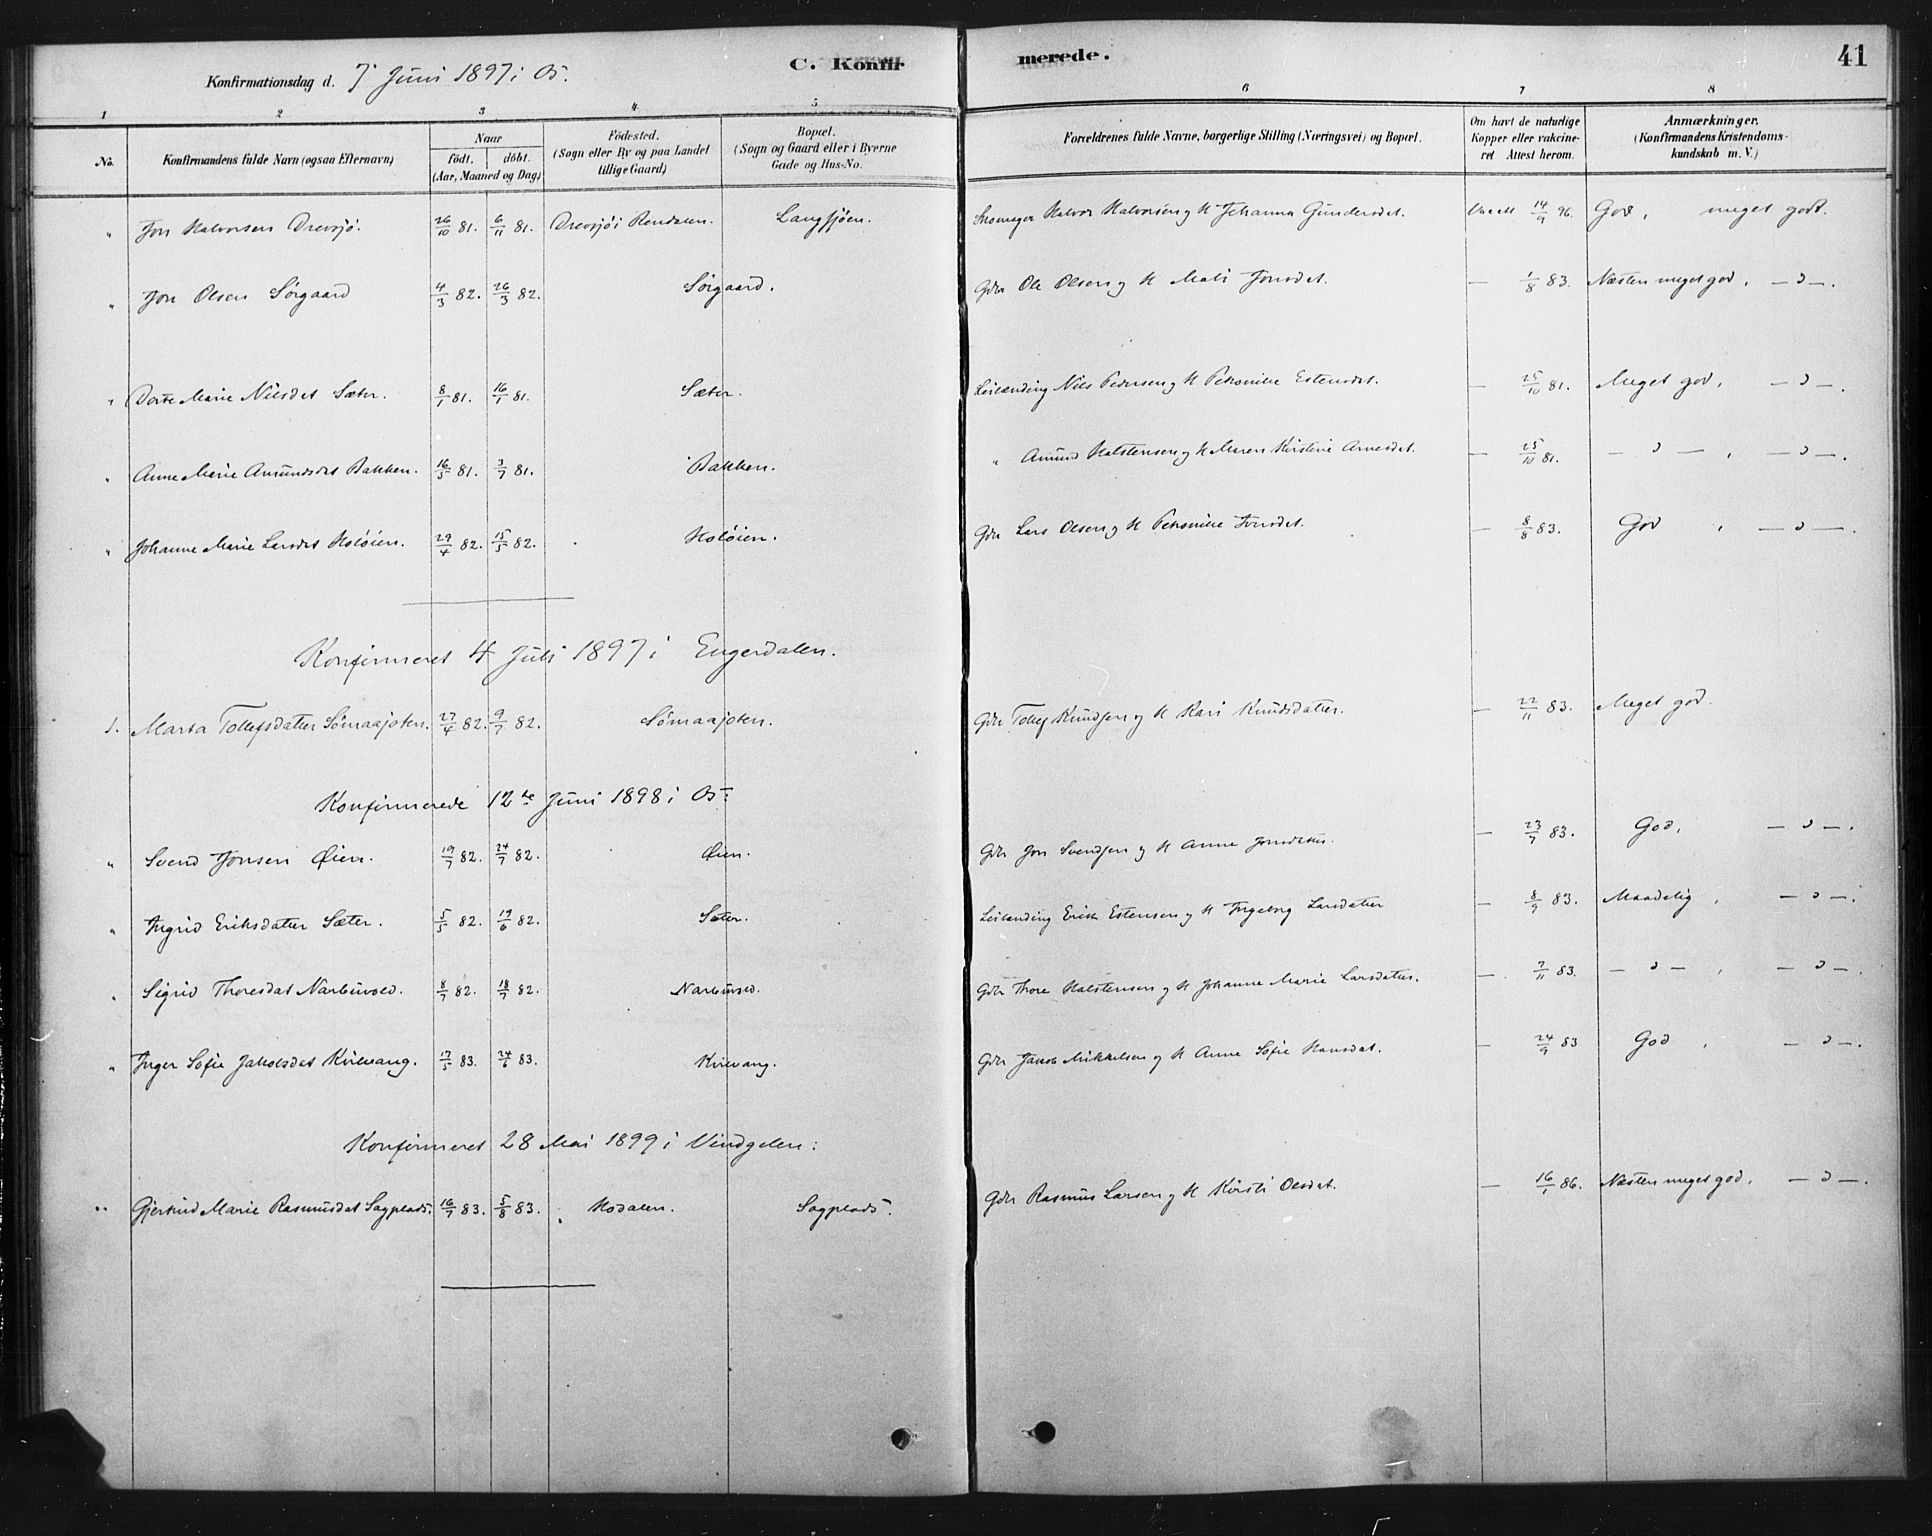 C. Konfirmerede. 41
Konfirmationsdag d. 7 Juni 1897 i Os.
1 2 3 4 5 6 7 8
No.
Konfirmandens fulde Navn (ogsaa Efternavn)
Naar
födt. döbt.
(Aar, Maaned og Dag)
Födested.
(Sogn eller By og paa Landet
tillige Gaard)
Bopæl.
(Sogn og Gaard eller i Byerne
Gade og Hus-No.
Forældrenes fulde Navne, borgerlige Stilling (Næringsvei) og Bopæl.
Om havt de naturlige
Kopper eller vakcine-
ret Attest herom.
Anmærkninger.
(Konfirmandens Kristendoms-
kundskab m. V.)
" Jon Halvorsen Drevsjö. 26/10 81. 6/11 81. Drevsjö i Rendalen. Langsjöen. Skomager Halvor Halvorsen og H Johanna Gundersdat. 14/9 96. God, meget godt.
" Jon Olsen Sörgaard 4/3 82. 26/3 82. Sörgaard. Gdbr Ole Olsen og H Mali Jonsdat. — 1/8 83. Næsten meget god, — " —.
" Dorte Marie Nilsdat Sæter. 8/1 81. 16/1 81. Sæter. Leilænding Nils Pedersen og H Petronille Estensdat. — 25/10 81. Meget god, — " —.
" Anne Marie Amundsdat Bakken. 16/5 81. 3/7 81. Bakken. " Amund Halstensen og H Maren Kirstine Arnesdat. — 25/10 81. — " —, — " —.
" Johanne Marie Larsdat Holöien. 29/4 82. 15/5 82. Holöien. Gdbr Lars Olsen og H Petronille Jonsdat. — 8/8 83. God, — " —.
Konfirmeret 4 Juli 1897 i Engerdalen.
1. Marta Tollefsdatter Sömaajoten. 27/4 82. 9/7 82. Sömaajoten. Gdbr Tollef Knudsen og H Kari Knudsdatter. — 22/11 83. Meget god.
Konfirmerede 12te Juni 1898 i Os:
" Svend Jonsen Öien. 19/7 82. 24/7 82. Öien. Gdbr Jon Svendsen og H Anne Jonsdatter. — 23/7 83. God, — " —.
" Ingrid Eriksdatter Sæter. 5/5 82. 19/6 82. Sæter. Leilænding Erik Estensen og H Ingeborg Larsdatter — 8/9 83. Maadelig, — " —.
" Sigrid Thoresdat Narbuvold. 8/7 82. 18/7 82. Narbuvold. Gdbr Thore Halstensen og H Johanne Marie Larsdatter. — 7/11 83. — " —, — " —.
" Inger Sofie Jakobsdat Kvilvang. 17/5 83. 24/6 83. Kvilvang. Gdbr Jakob Mikkelsen og H Anne Sofie Hansdat. — 24/9 83 God, — " —.
Konfirmeret 28 Mai 1899 i Vingelen:
" Gjertrud Marie Rasmusdat Sagplads. 16/7 83. 5/8 83. Hodalen. Sagplads. Gdbr Rasmus Larsen og H Kirsti Olsdat. — 16/1 86. Næsten meget god, — " —.